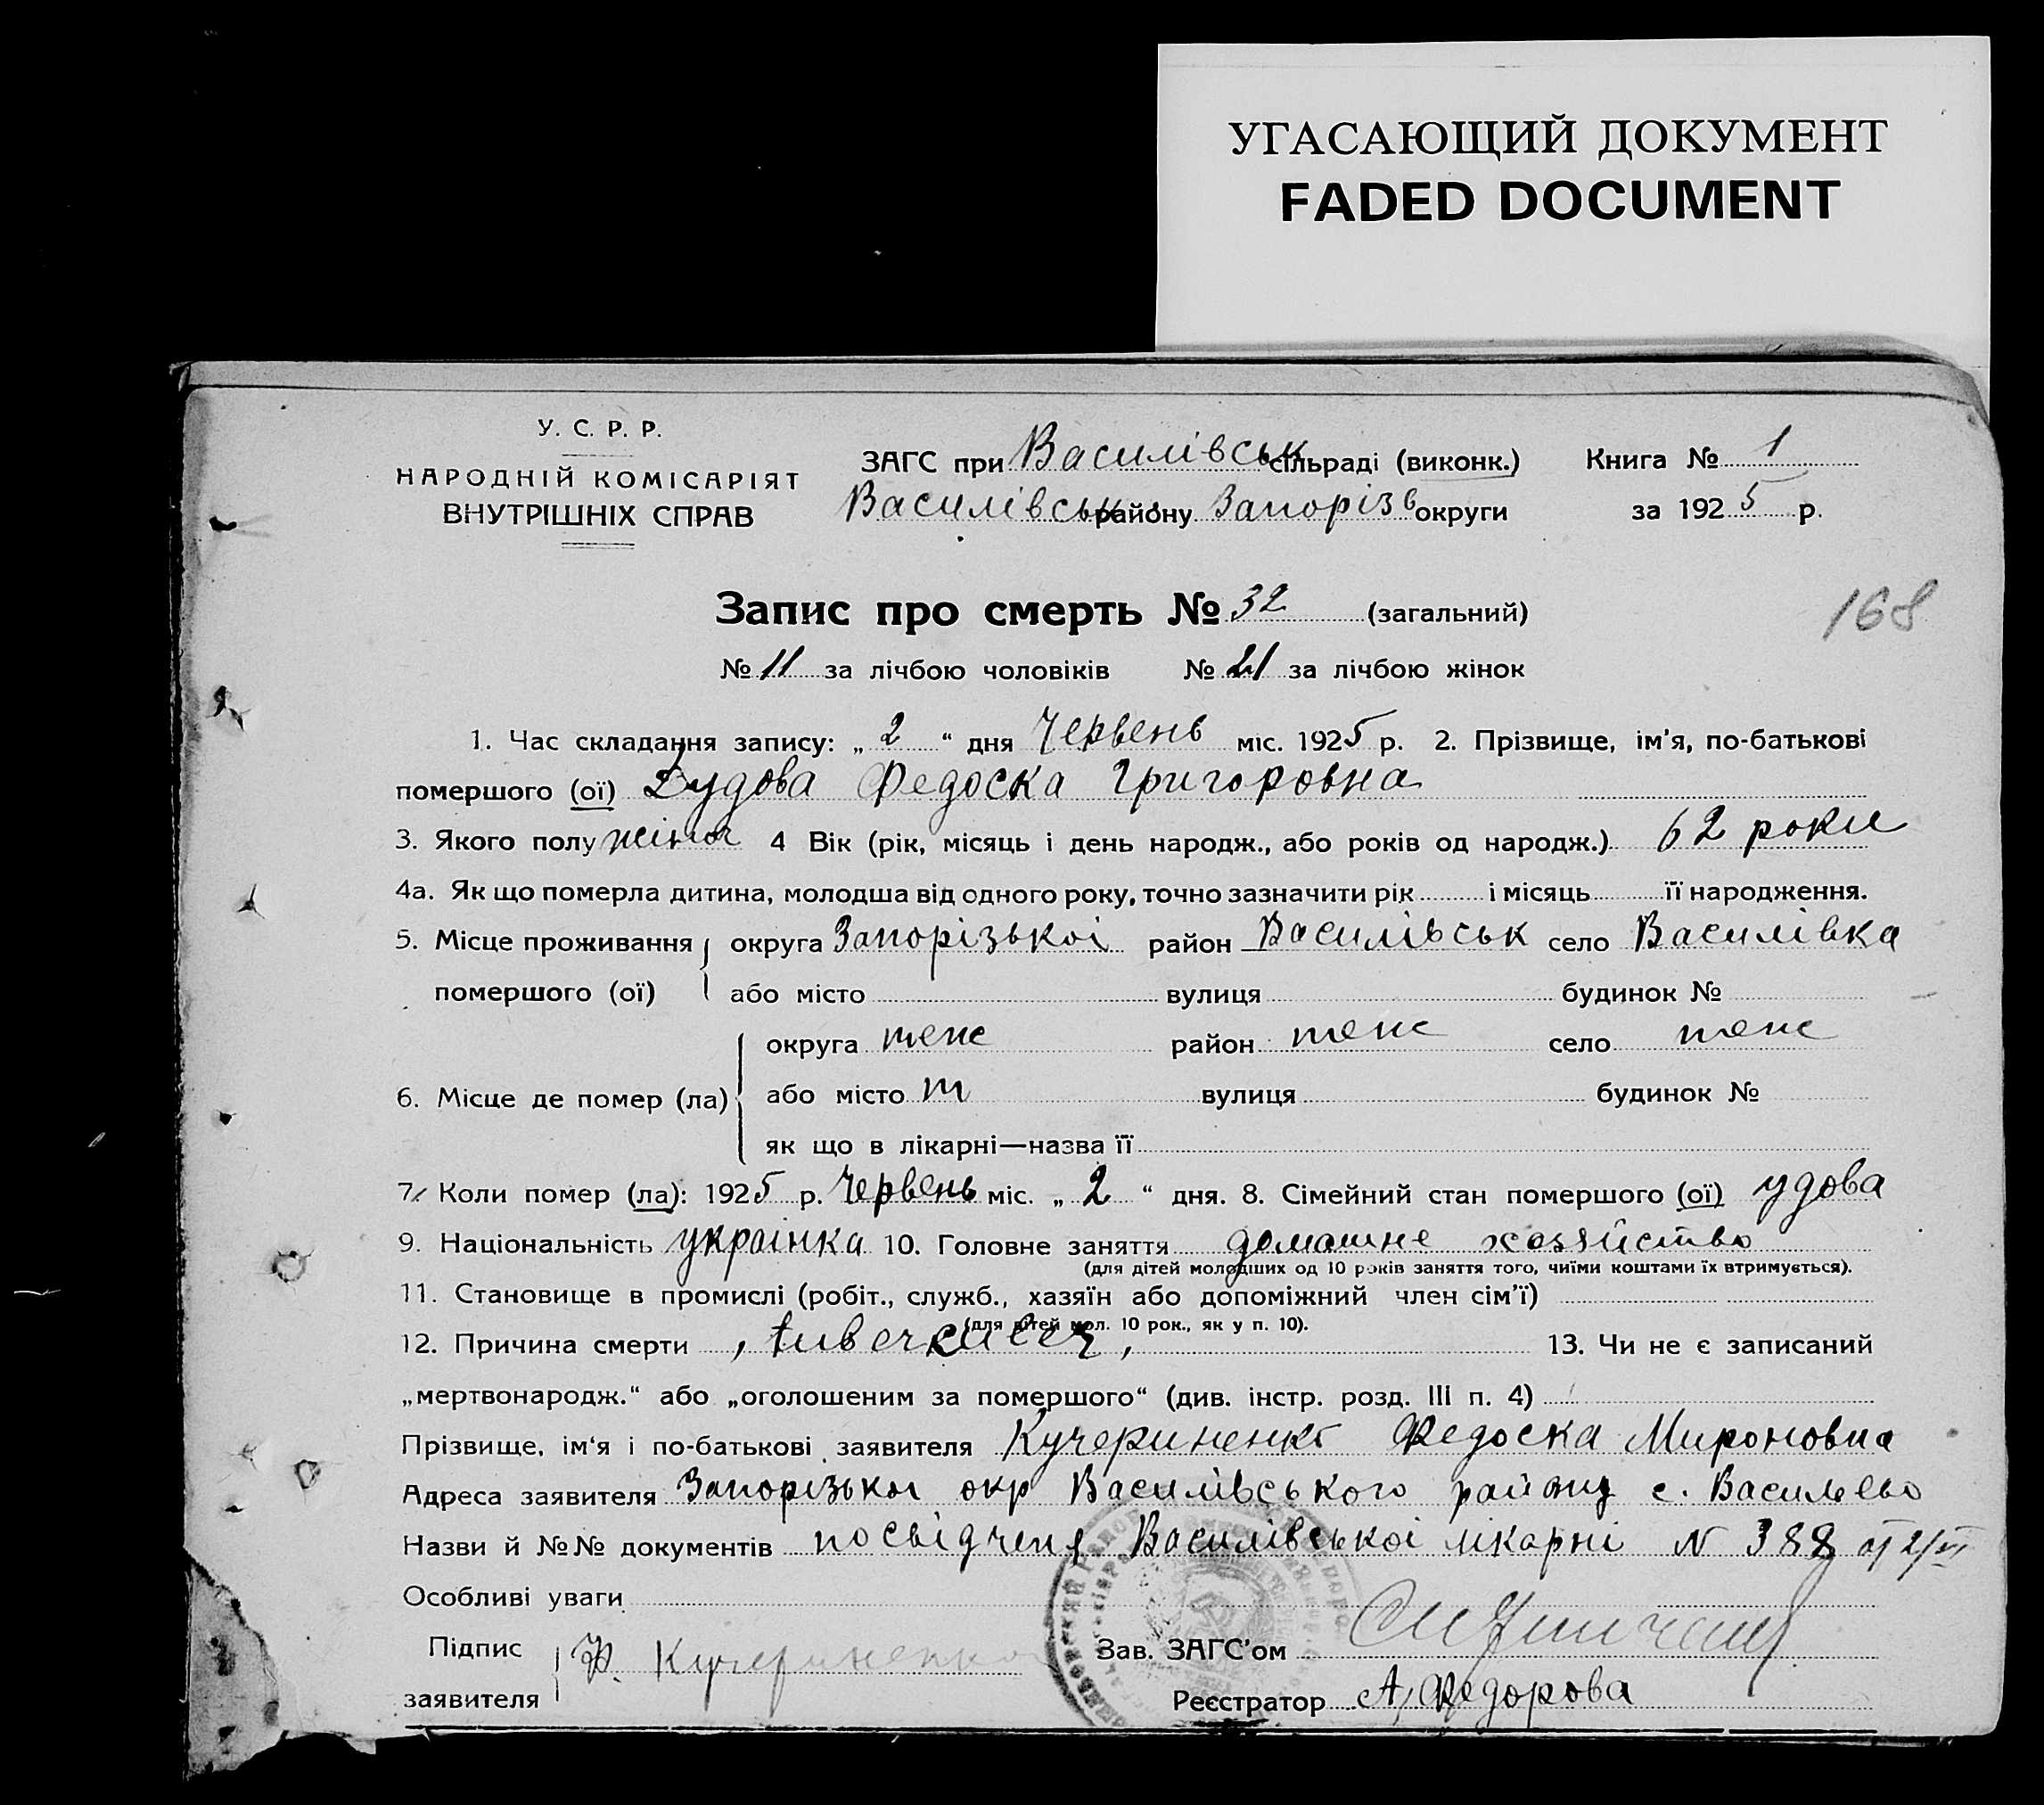 УГАСАЮЩИЙ ДОКУМЕНТ
FADED DOCUMENT
У. С. Р. Р.
НАРОДНІЙ КОМІСАРІЯТ
ВНУТРІШНІХ СПРАВ
ЗАГС при Василівськ сільраді (виконк.) Книга № 1
Василівськ району Запорізв округи за 1925 р.
Запис про смерть № 32 (загальний)
168
№ 11 за лічбою чоловіків № 21 за лічбою жінок
1. Час складання запису: „ 2 “ дня Червень міс. 1925 р. 2. Прізвище, ім'я, по-батькові
помершого (ої) Дудова Федоска Григоровна
3. Якого полу жіноч 4 Вік (рік, місяць і день народж., або років од народж.) 62 роки
4а. Як що померла дитина, молодша від одного року, точно зазначити рік і місяць її народження.
5. Місце проживання округа Запорізькоі район Василівськ село Василівка
помершого (ої) або місто вулиця будинок №
округа теж район теж село теж
6. Місце де помер (ла) або місто т вулиця будинок №
як що в лікарні—назва її
7. Коли помер (ла): 1925 р. Червень міс. „ 2 “ дня. 8. Сімейний стан помершого (ої) удова
9. Національність украінка 10. Головне заняття домашне хозяйство
(для дітей молодших од 10 років заняття того, чиїми коштами їх втримується).
11. Становище в промислі (робіт., служб., хазяїн або допоміжний член сім'ї)
(для дітей мол. 10 рок., як у п. 10).
12. Причина смерти 13. Чи не є записаний
„мертвонародж.“ або „оголошеним за помершого“ (див. інстр. розд. III п. 4)
Прізвище, ім'я і по-батькові заявителя Кучериненко Федоска Мироновна
Адреса заявителя Запорізькоі окр Василівського району с. Васильево
Назви й №№ документів посвідченя Василівськоі лікарні N 388 от 2/VI
Особливі уваги
Підпис Ф. Кучериненко Зав. ЗАГС'ом
заявителя Реєстратор А, Федорова